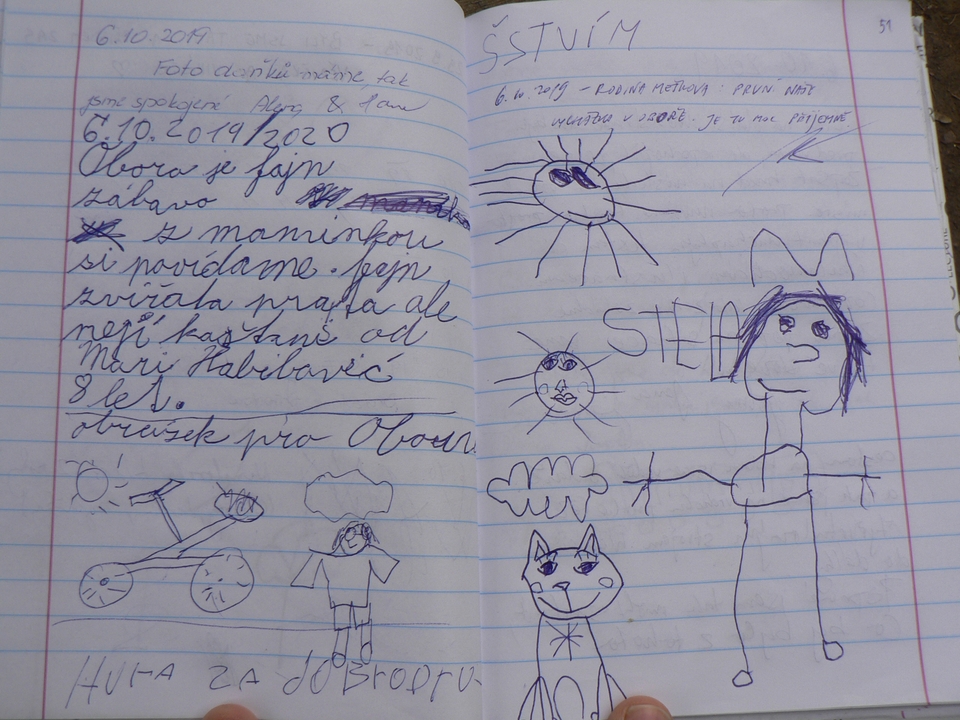 6.10.2019
Foto daňků máme, tak
jsme spokojené Alena &
6.10.2019/2020
Obora je fajn
zábava
z maminkou
si povídame. fajn
zvířata prasata ale
nejí kaštani od
Mari Habibović
8 let.
obrázek pro Oboru
HURA ZA dOBRODRU
51
ŠSTVÍM
6.10.2019 - RODINA METKOVA: PRVNÍ NAŠE
V OBOŘE. JE TU MOC PŘÍJEMNĚ
STELA